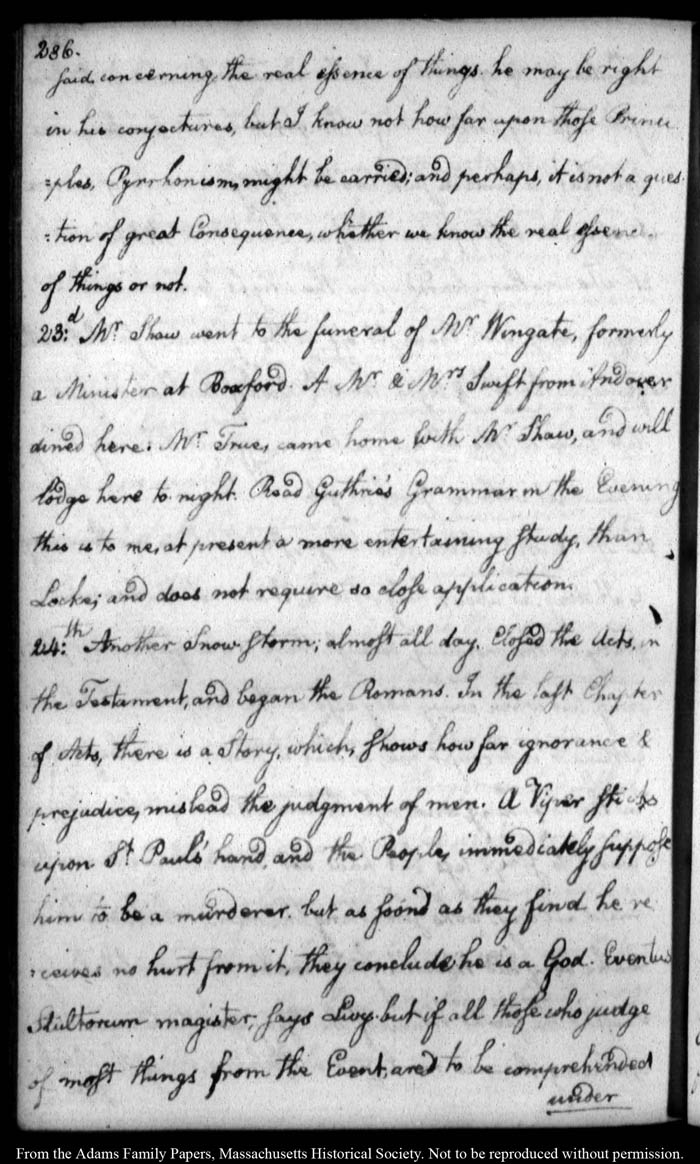 286.
said concerning the real essence of things. he may be right
in his conjectures, but I know not how far upon those Princi
:ples, Pyrrhonism, might be carried; and perhaps, it is not a ques
:tion of great Consequence, whether we know the real essence
of things or not.
23:d Mr. Shaw went to the funeral of Mr. Wingate, formerly
a Minister at Boxford. A Mr. & Mrs. Swift from Andover
dined here. Mr. True, came home with Mr. Shaw, and will
lodge here to night. Read Guthrie's Grammar in the Evening
this is to me, at present a more entertaining study, than
Locke; and does not require so close application.
24:th Another Snow storm; almost all day. Closed the Acts, in
the Testament, and began the Romans. In the last Chapter
of Acts, there is a Story, which, shows how far ignorance &
prejudice, mislead the judgment of men. A Viper sticks
upon St. Paul's hand, and the People, immediately suppose
him to be a murderer. but as soond as they find he re
:ceives no hurt from it, they conclude he is a God. Eventus
Stultorum magister, says Livy. but if all those who judge
of most things from the Event, ared to be comprehended
under
From the Adams Family Papers, Massachusetts Historical Society. Not to be reproduced without permission.